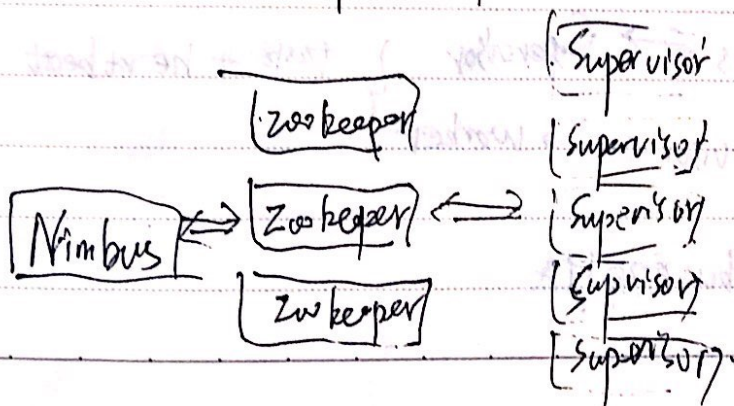 Zookeeper
Nimbus
Zookeeper
Zookeeper
Supervisor
Supervisor
Supervisor
Supvisor
Supervisor